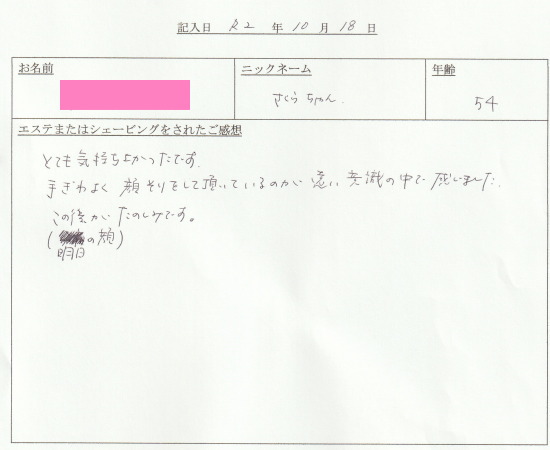 記入日 R2 年 10 月 18 日
お名前
ニックネーム
年齢
さくらちゃん.
54
エステまたはシェービングをされたご感想
とても気持ちよかったです.
手ぎわよく 顔そりをして頂いているのが 遠い 意識の中で 感じました.
この後が たのしみです。
(の顔)
明日